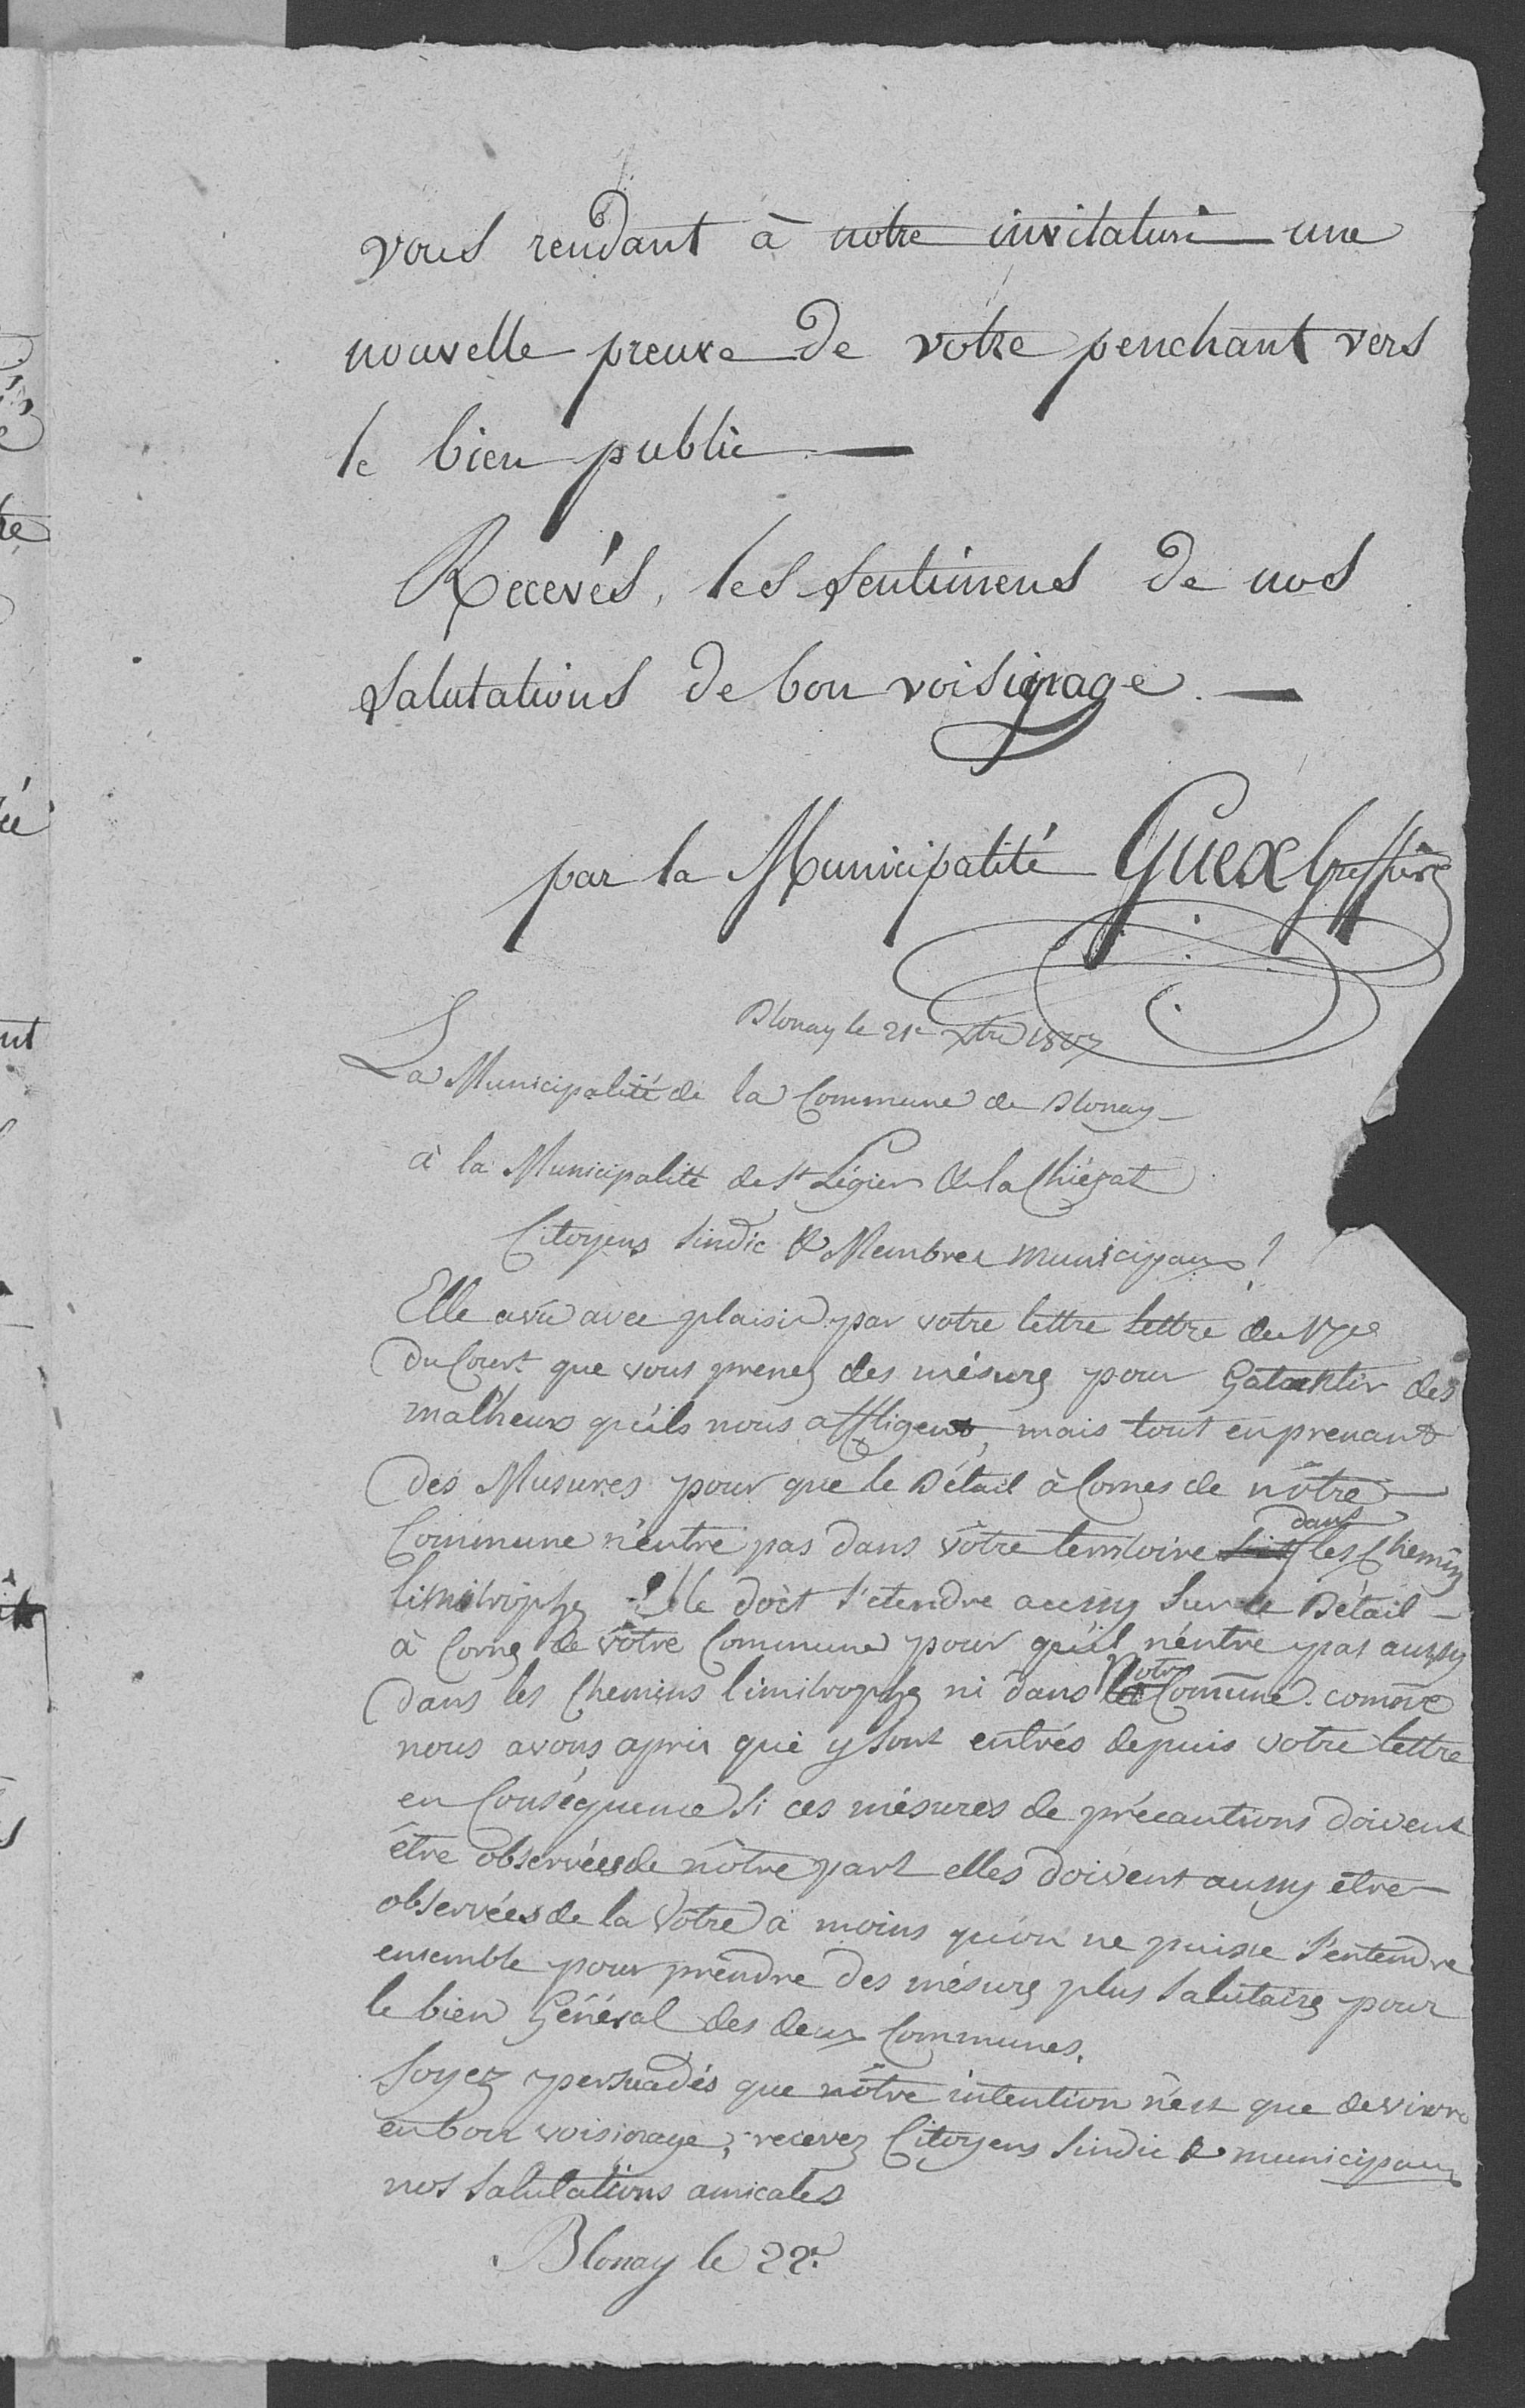 vous rendant à notre invitation une
nouvelle preuve de votre penchant vers
le bien public —
Recevés, les sentimens de nos
salutations de bon voisinage. —
par la Municipalité Guex Greffier
Blonay le 21e Xbre 1807
La Municipalité de la Commune de Blonay
à la Municipalité de St Légier & la Chiésaz
Citoyens Sindic & Membres municipaux !
Elle a vû avec plaisir par votre lettre lettre du 17e
du Court que vous prenez des mésures pour Garantir des
malheurs qu'ils nous affligent, mais tout en prenant
des Musures pour que le Bétail à Cornes de nôtre
Commune n'entre pas dans vôtre territoire dans les Chemins
limitrophes Elle doit s'etendre aussy sur le Bétail
à Cornes de vôtre Commune pour qu'il n'entre pas aussy
dans les Chemins limitrophes ni dans Notre Comune. comme
nous avons apris qui y sont entrés depuis votre lettre
en Conséquence si ces mésures de précautions doivent
être observées de nôtre part elles doivent aussy être
observées de la Votre à moins qu'on ne puisse s'entendre
ensemble pour prendre des mésures plus salutaires pour
le bien Général des deux Communes.
Soyez persuadés que nôtre intention n'est que de vivre
en bon voisinage, recevez Citoyens Sindic & municipaux
nos salutations amicales
Blonay le 22e